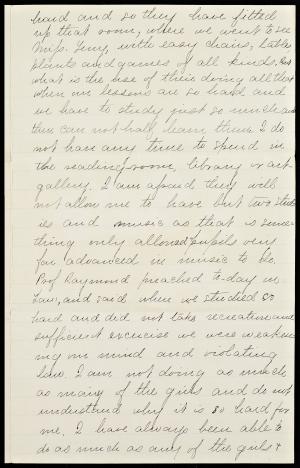 hard and so they have fitted
up that room, where we went to see
Miss. Terry, with easy chairs, tables
plants and games of all kinds. But
what is the use of their doing all that
when our lessons are so hard and
we have to study just so much and
then can not half learn them. I do
not have any time to spend in
the reading room, library or art
gallery. I am afraid they will
not allow me to have but two stud
ies and music as that is some
thing only allowed pupils very
far advanced in music to do.
Prof Raymond preached to-day on
Law, and said where we studied so
hard and did not take recreation and
sufficient exercise we were weaken
ing our mind and violating
law. I am not doing as much
as many of the girls and do not
understand why it is so hard for
me. I have always been able to
do as much as any of the girls &